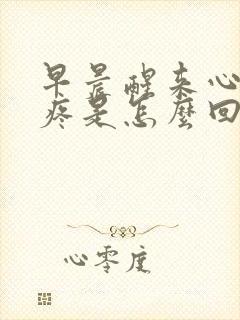 早晨醒来心
疼是怎麼回
心零度